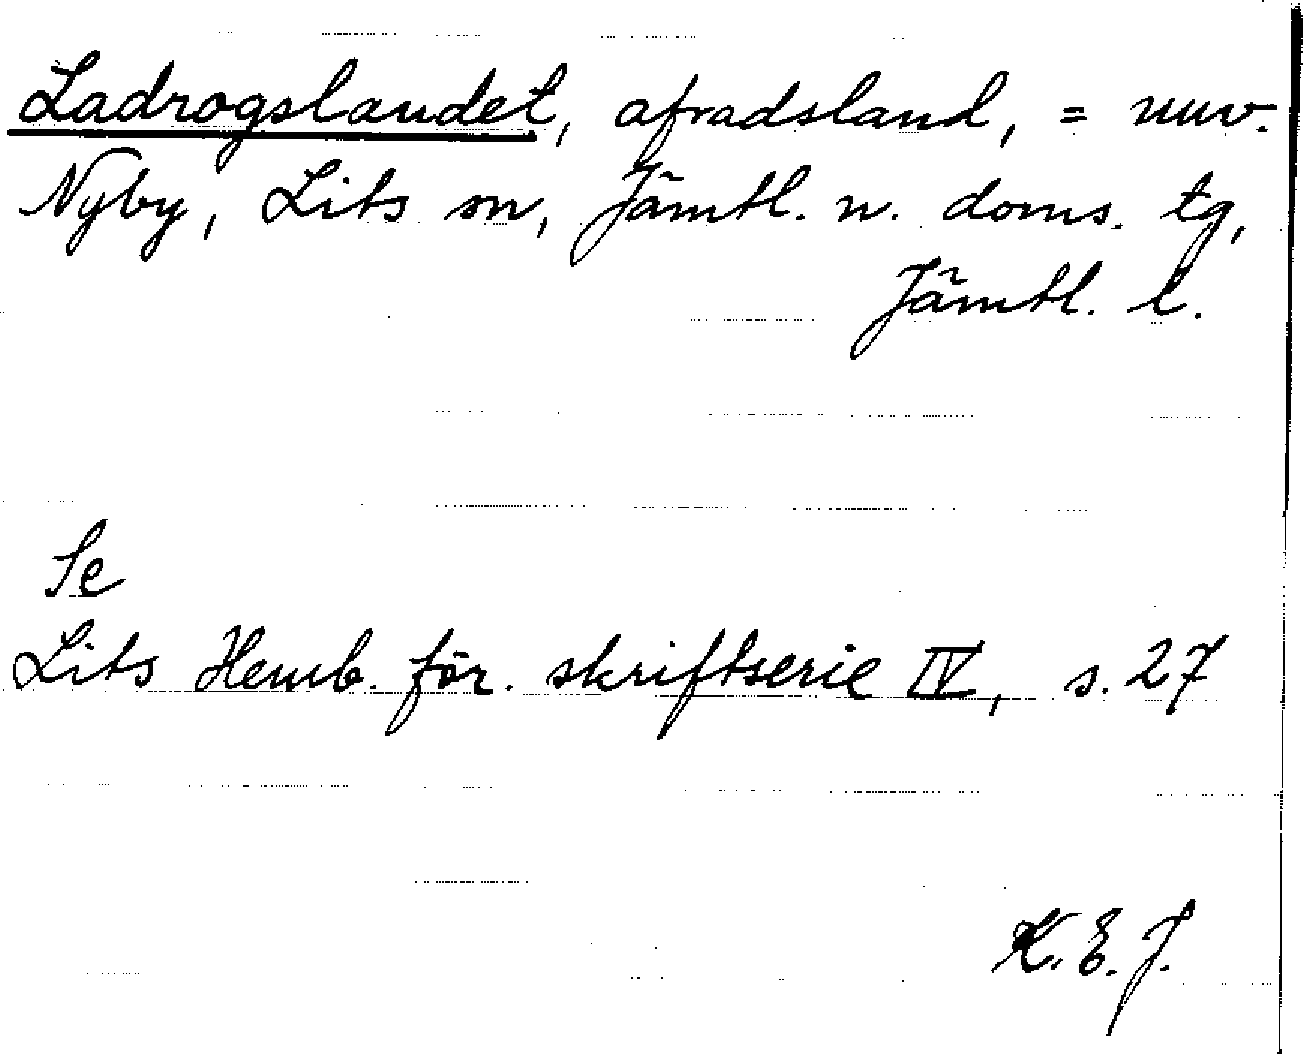 Ladrogslandet, afradsland, = nuv.
Nyby, Lits sn, Jämtl. n. doms. tg,
Jämtl. l.
Se
Lits Hemb. för. skriftserie IV, s. 27
K. E. J.